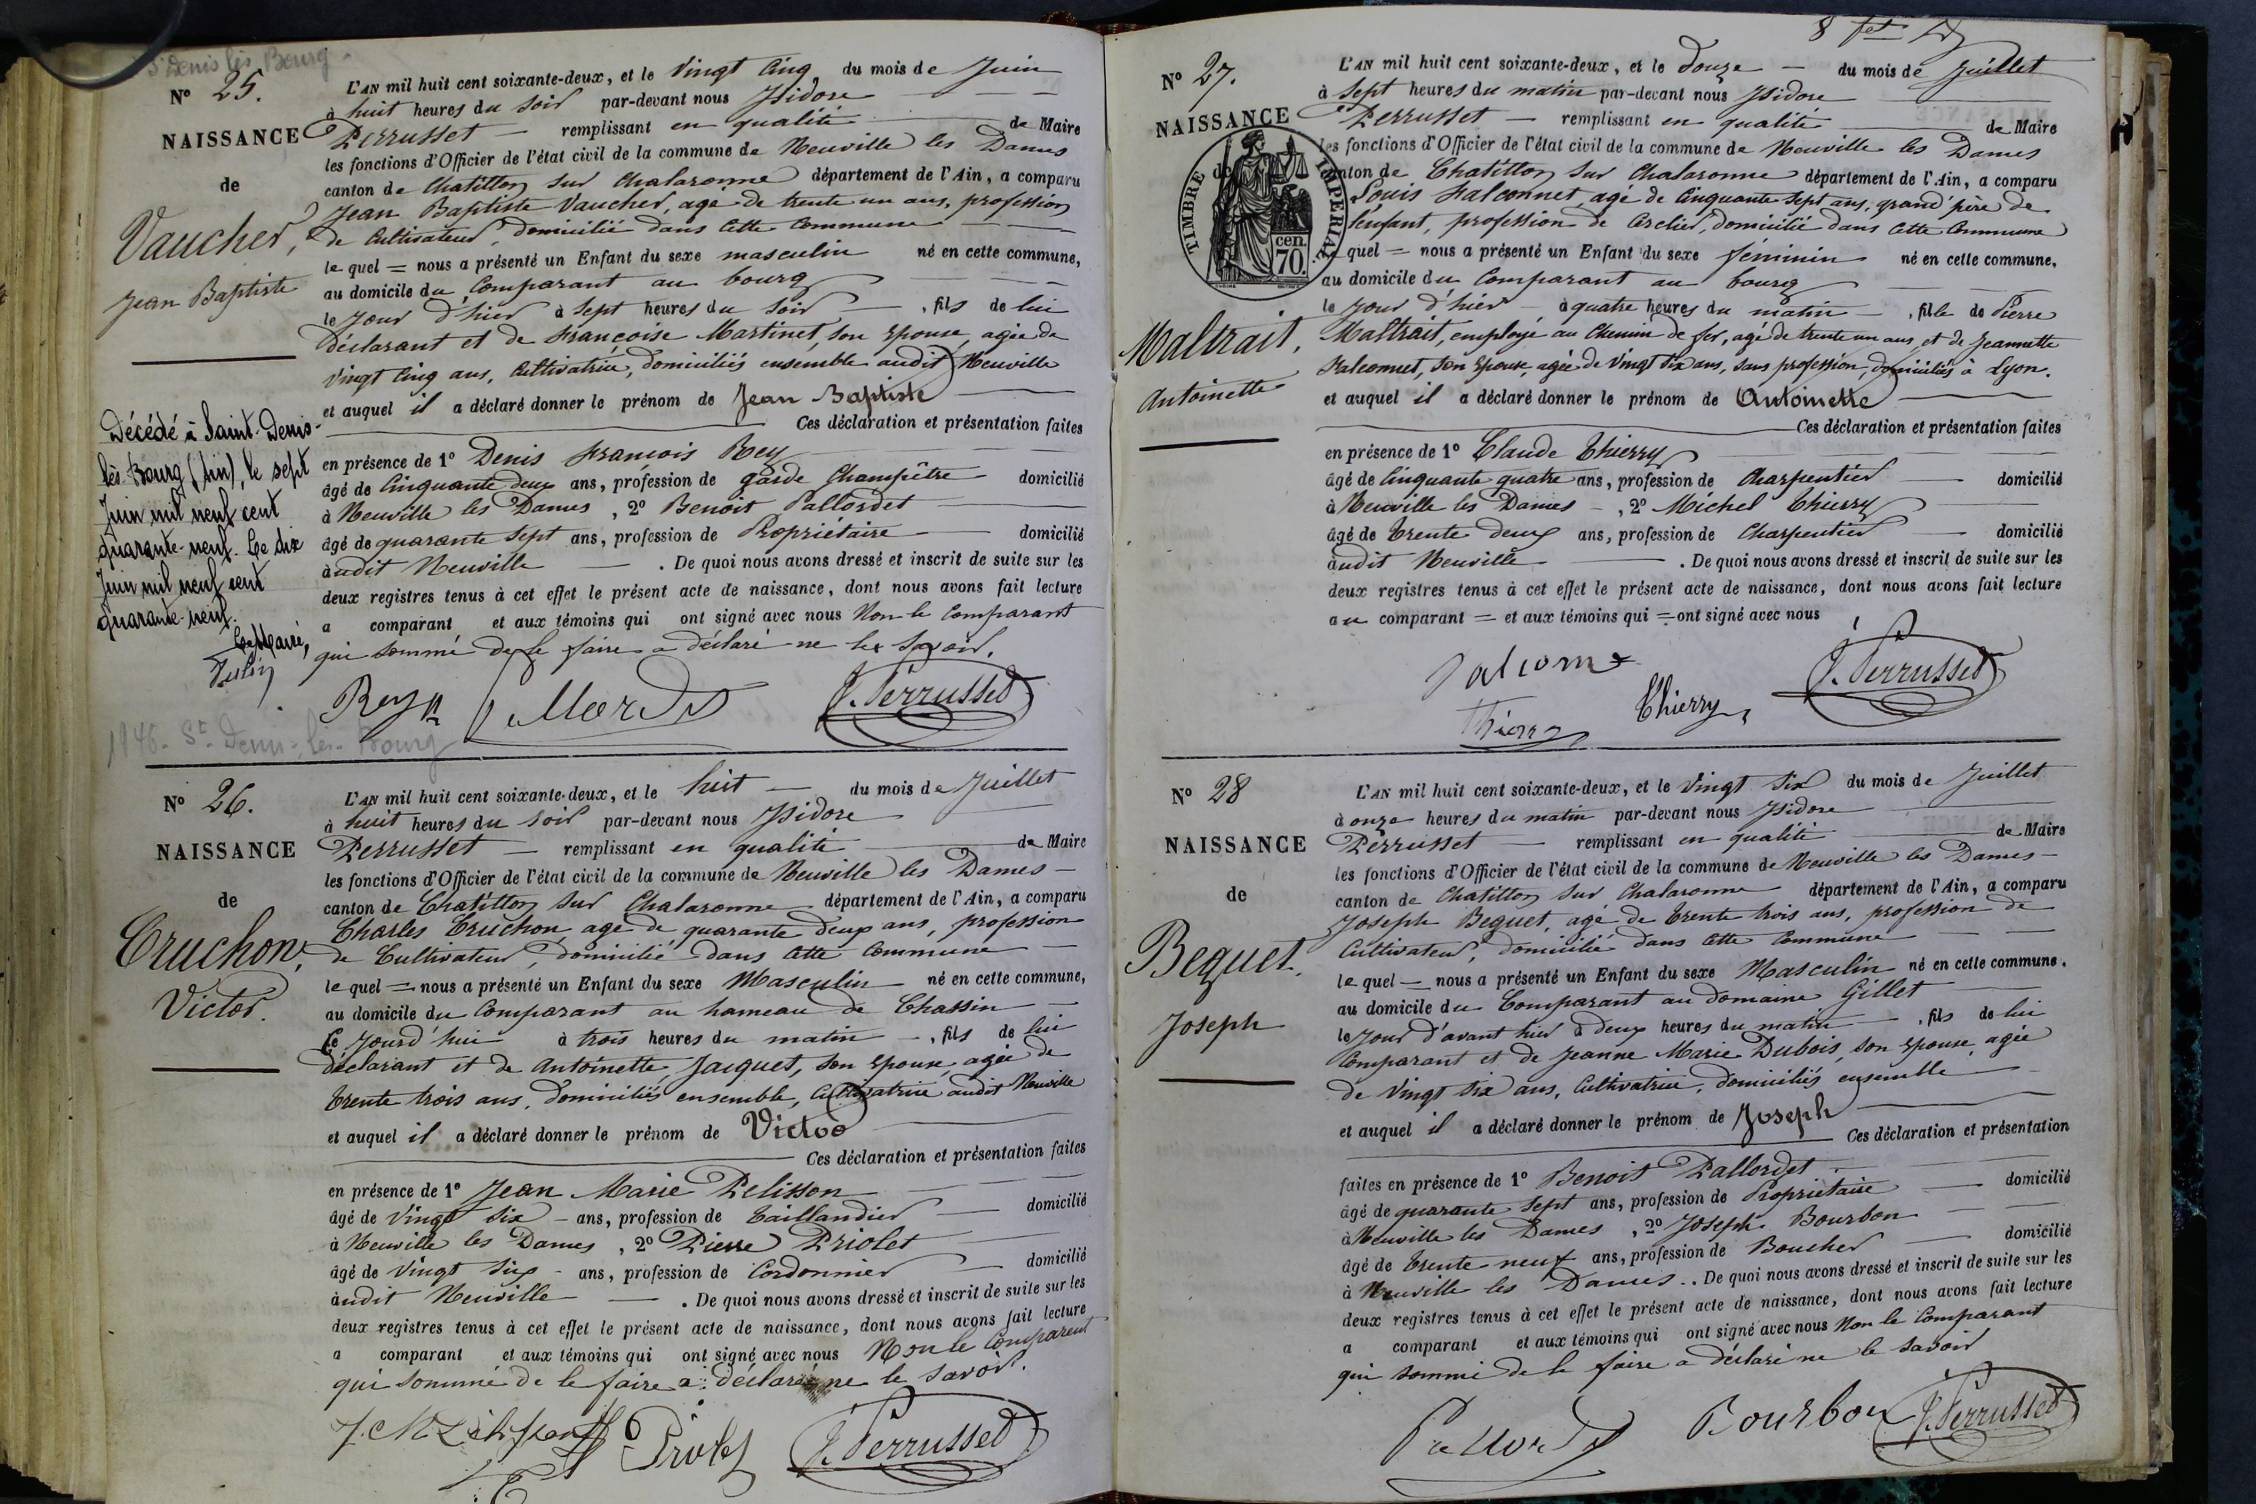 St Denis lès Bourg.
N° 25.
NAISSANCE
de
Vaucher,
Jean Baptiste
L'AN mil huit cent soixante-deux, et le Vingt Cinq, du mois de Juin
à huit heures du Soir par-devant nous Isidore
Perrusset remplissant en qualité de Maire
les fonctions d'Officier de l'état civil de la commune de Neuville les Dames
canton de Chatillon sur Chalaronne département de l'Ain, a comparu
Jean Baptiste Vaucher, agé de trente un ans, profession
de Cultivateur, domicilié dans cette Commune
le quel = nous a présenté un Enfant du sexe masculin né en cette commune,
au domicile du Comparant au bourg
le Jour d'hier à Sept heures du Soir, fils de lui
déclarant et de Françoise Martinet, son épouse, agée de
Vingt Cinq ans, Cultivatrice, domiciliés ensemble audit Neuville
et auquel il a déclaré donner le prénom de Jean Baptiste
Ces déclaration et présentation faites
en présence de 1° Denis François Rey
âgé de Cinquante deux ans, profession de garde Champêtre domicilié
à Neuville les Dames, 2° Benoit Pallordet
âgé de quarante Sept ans, profession de Propriétaire domicilié
audit Neuville . De quoi nous avons dressé et inscrit de suite sur les
deux registres tenus à cet effet le présent acte de naissance, dont nous avons fait lecture
a comparant et aux témoins qui ont signé avec nous Non le Comparant
qui sommé de le faire a déclaré ne le Savoir.
Rey Pallordet J. Perrusset
Décédé à Saint-Denis-
lès-Bourg (Ain), le sept
Juin mil neuf cent
quarante-neuf. Le dix
Juin mil neuf cent
quarante-neuf.
Le Maire,
St Denis-lès-Bourg
N° 26.
NAISSANCE
de
Cruchon,
Victor.
L'AN mil huit cent soixante-deux, et le huit du mois de Juillet
à huit heures du Soir par-devant nous Isidore
Perrusset remplissant en qualité de Maire
les fonctions d'Officier de l'état civil de la commune de Neuville les Dames
canton de Chatillon sur Chalaronne département de l'Ain, a comparu
Charles Cruchon, agé de quarante deux ans, profession
de Cultivateur, domicilié dans cette Commune
le quel = nous a présenté un Enfant du sexe Masculin né en cette commune,
au domicile du Comparant au hameau de Chassin
Ce Jourd'hui à trois heures du matin, fils de lui
déclarant et de Antoinette Jacquet, son épouse, agée de
Trente trois ans, domiciliés ensemble, Cultivatrice audit Neuville
et auquel il a déclaré donner le prénom de Victor
Ces déclaration et présentation faites
en présence de 1° Jean Marie Pelisson
âgé de Vingt Six ans, profession de Taillandier domicilié
à Neuville les Dames, 2° Pierre Priolet
âgé de Vingt Six ans, profession de Cordonnier domicilié
audit Neuville . De quoi nous avons dressé et inscrit de suite sur les
deux registres tenus à cet effet le présent acte de naissance, dont nous avons fait lecture
a comparant et aux témoins qui ont signé avec nous Non le Comparant
qui sommé de le faire a déclaré ne le Savoir.
Priolet J. Perrusset
N° 27.
NAISSANCE
de
TIMBRE IMPERIAL
70 cen.
Maltrait,
Antoinette
L'AN mil huit cent soixante-deux, et le Douze du mois de Juillet
à Sept heures du matin par-devant nous Isidore
Perrusset remplissant en qualité de Maire
les fonctions d'Officier de l'état civil de la commune de Neuville les Dames
canton de Chatillon sur Chalaronne département de l'Ain, a comparu
Louis Falconnet, agé de Cinquante Sept ans, grand'père de
l'enfant, profession de Cerclier, domicilié dans cette Commune
le quel = nous a présenté un Enfant du sexe féminin né en cette commune,
au domicile du Comparant au bourg
le Jour d'hier à quatre heures du matin, fille de Pierre
Maltrait, employé au Chemin de fer, agé de trente un ans, et de Jeannette
Falconnet, son épouse, agée de Vingt Six ans, sans profession, domiciliés à Lyon.
et auquel il a déclaré donner le prénom de Antoinette
Ces déclaration et présentation faites
en présence de 1° Claude Thierry
âgé de Cinquante quatre ans, profession de Charpentier domicilié
à Neuville les Dames, 2° Michel Thierry
âgé de Trente deux ans, profession de Charpentier domicilié
audit Neuville . De quoi nous avons dressé et inscrit de suite sur les
deux registres tenus à cet effet le présent acte de naissance, dont nous avons fait lecture
au comparant = et aux témoins qui = ont signé avec nous
Thierry Thierry J. Perrusset
N° 28
NAISSANCE
de
Bequet,
Joseph
L'AN mil huit cent soixante-deux, et le Vingt Six du mois de Juillet
à onze heures du matin par-devant nous Isidore
Perrusset remplissant en qualité de Maire
les fonctions d'Officier de l'état civil de la commune de Neuville les Dames
canton de Chatillon sur Chalaronne département de l'Ain, a comparu
Joseph Bequet, agé de Trente trois ans, profession de
Cultivateur, domicilié dans cette Commune
le quel = nous a présenté un Enfant du sexe Masculin né en cette commune,
au domicile du Comparant au domaine Gillet
le Jour d'avant hier à deux heures du matin, fils de lui
Comparant et de Jeanne Marie Dubois, son épouse, agée
de Vingt Six ans, Cultivatrice, domiciliés ensemble
et auquel il a déclaré donner le prénom de Joseph
Ces déclaration et présentation
faites en présence de 1° Benoit Pallordet
âgé de quarante Sept ans, profession de Propriétaire domicilié
à Neuville les Dames, 2° Joseph Bourbon
âgé de Trente neuf ans, profession de Boucher domicilié
à Neuville les Dames . De quoi nous avons dressé et inscrit de suite sur les
deux registres tenus à cet effet le présent acte de naissance, dont nous avons fait lecture
a comparant et aux témoins qui ont signé avec nous Non le Comparant
qui sommé de le faire a déclaré ne le savoir
Pallordet Bourbon J. Perrusset